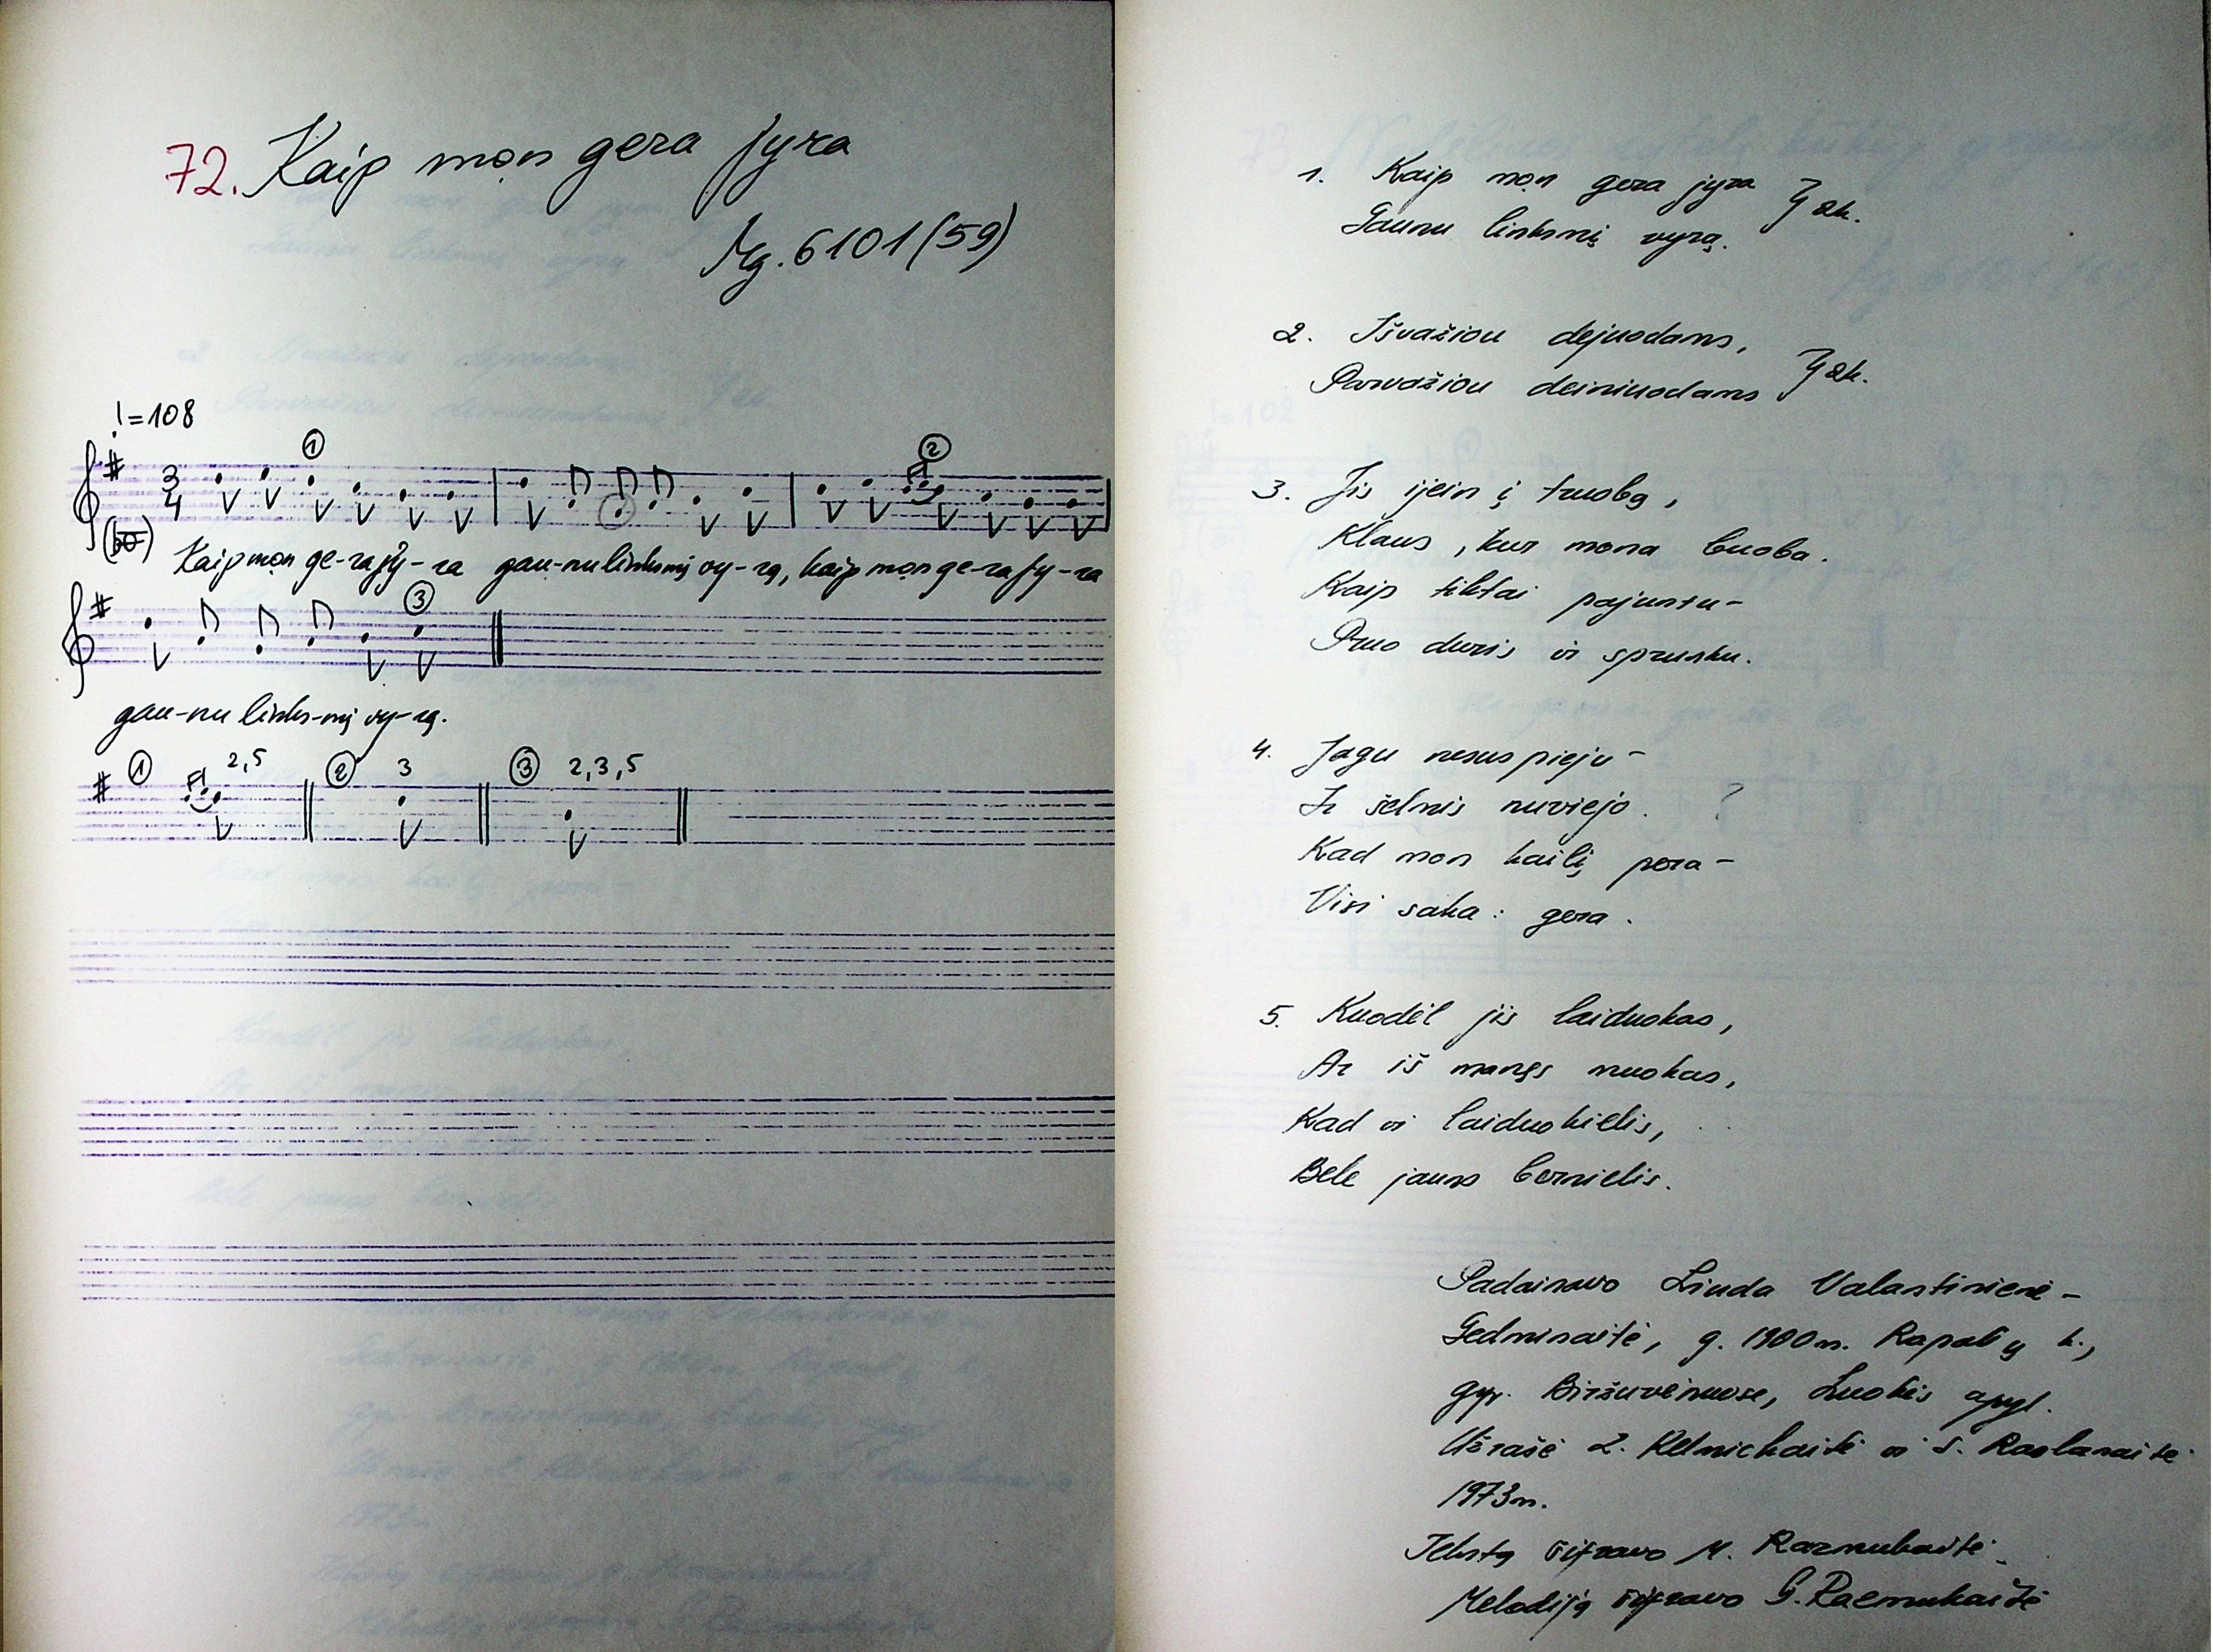 72. Kaip mon gera jyra
Mg. 6101 (59)
♩=108
① ②
3
4
Kaip mon ge-ra jy-ra gau-nu linksmį vy-rą, kaip mon ge-ra jy-ra
③
gau-nu links-mį vy-rą.
① 2,5 ② 3 ③ 2,3,5
1. Kaip mon gera jyra } 2k.
Gaunu linksmį vyrą.
2. Išvažiou dejuodams, } 2k.
Parvažiou deiniuodams
3. Jis ijein į truobą,
Klaus, kur mona buoba.
Kaip tiktai pajuntu-
Pruo duris ir sprunku.
4. Jagu nesuspieju-
Ir šelmis nuviejo. ?
Kad mon kailį pera-
Visi saka: gera.
5. Kuodėl jis laiduokas,
Ar iš manęs nuokas,
Kad ir laiduokielis,
Bele jauns bernielis.
Padainavo Liuda Valantinienė-
Gedminaitė, g. 1900 m. Rapalių k.,
gyv. Biržuvėnuose, Luokės apyl.
Užrašė L. Kelmickaitė ir S. Raslanaitė
1973 m.
Tekstą šifravo M. Razmukaitė.
Melodiją šifravo G. Razmukaitė